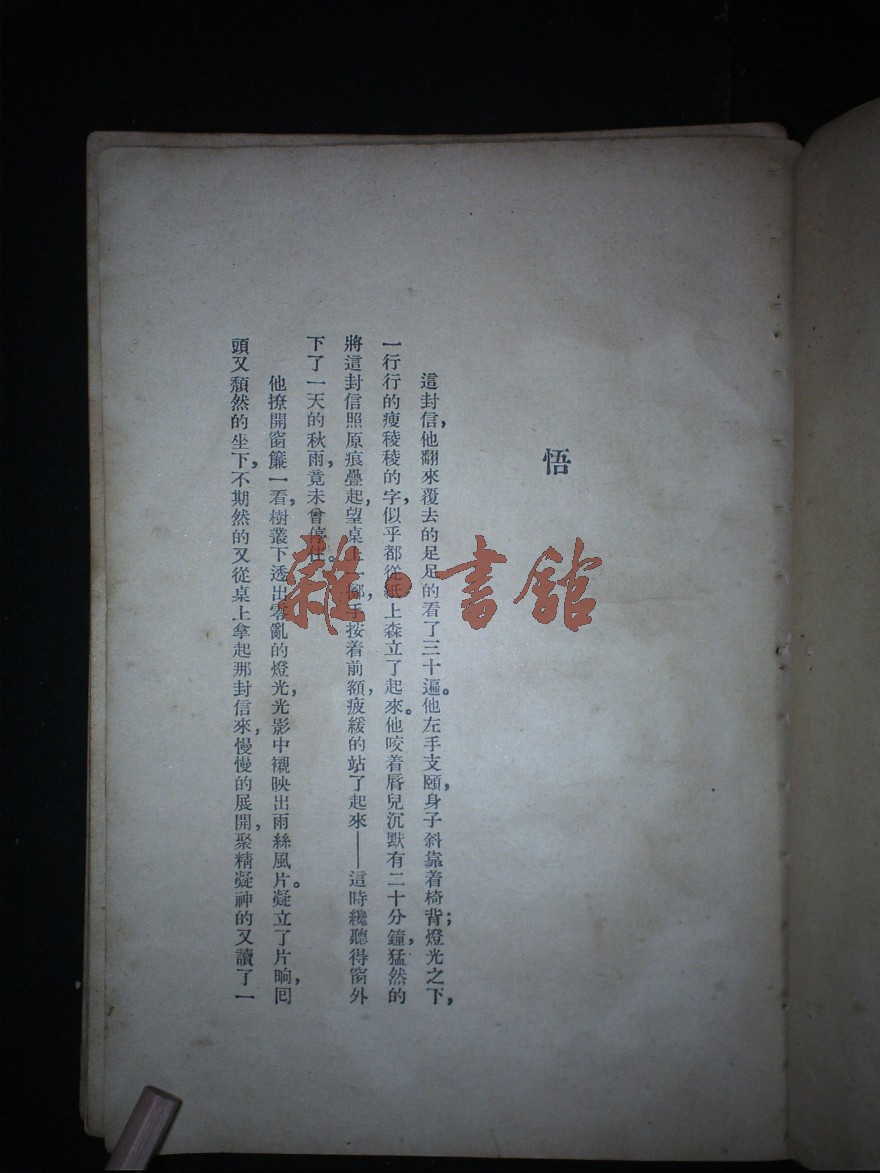 悟
這封信，他翻來覆去的足足的看了三十遍。他左手支頤，身子斜靠着椅背；燈光之下，
一行行的瘦稜稜的字，似乎都從紙上森立了起來。他咬着唇兒沉默有二十分鐘，猛然的
將這封信照原痕疊起，望桌上一擲，手按着前額，疲緩的站了起來——這時纔聽得窗外
下了一天的秋雨，竟未曾停住。
他撩開窗簾一看，樹叢下透出零亂的燈光，光影中襯映出雨絲風片。凝立了片晌，回
頭又頹然的坐下，不期然的又從桌上拿起那封信來，慢慢的展開，聚精凝神的又讀了一
雜·書館